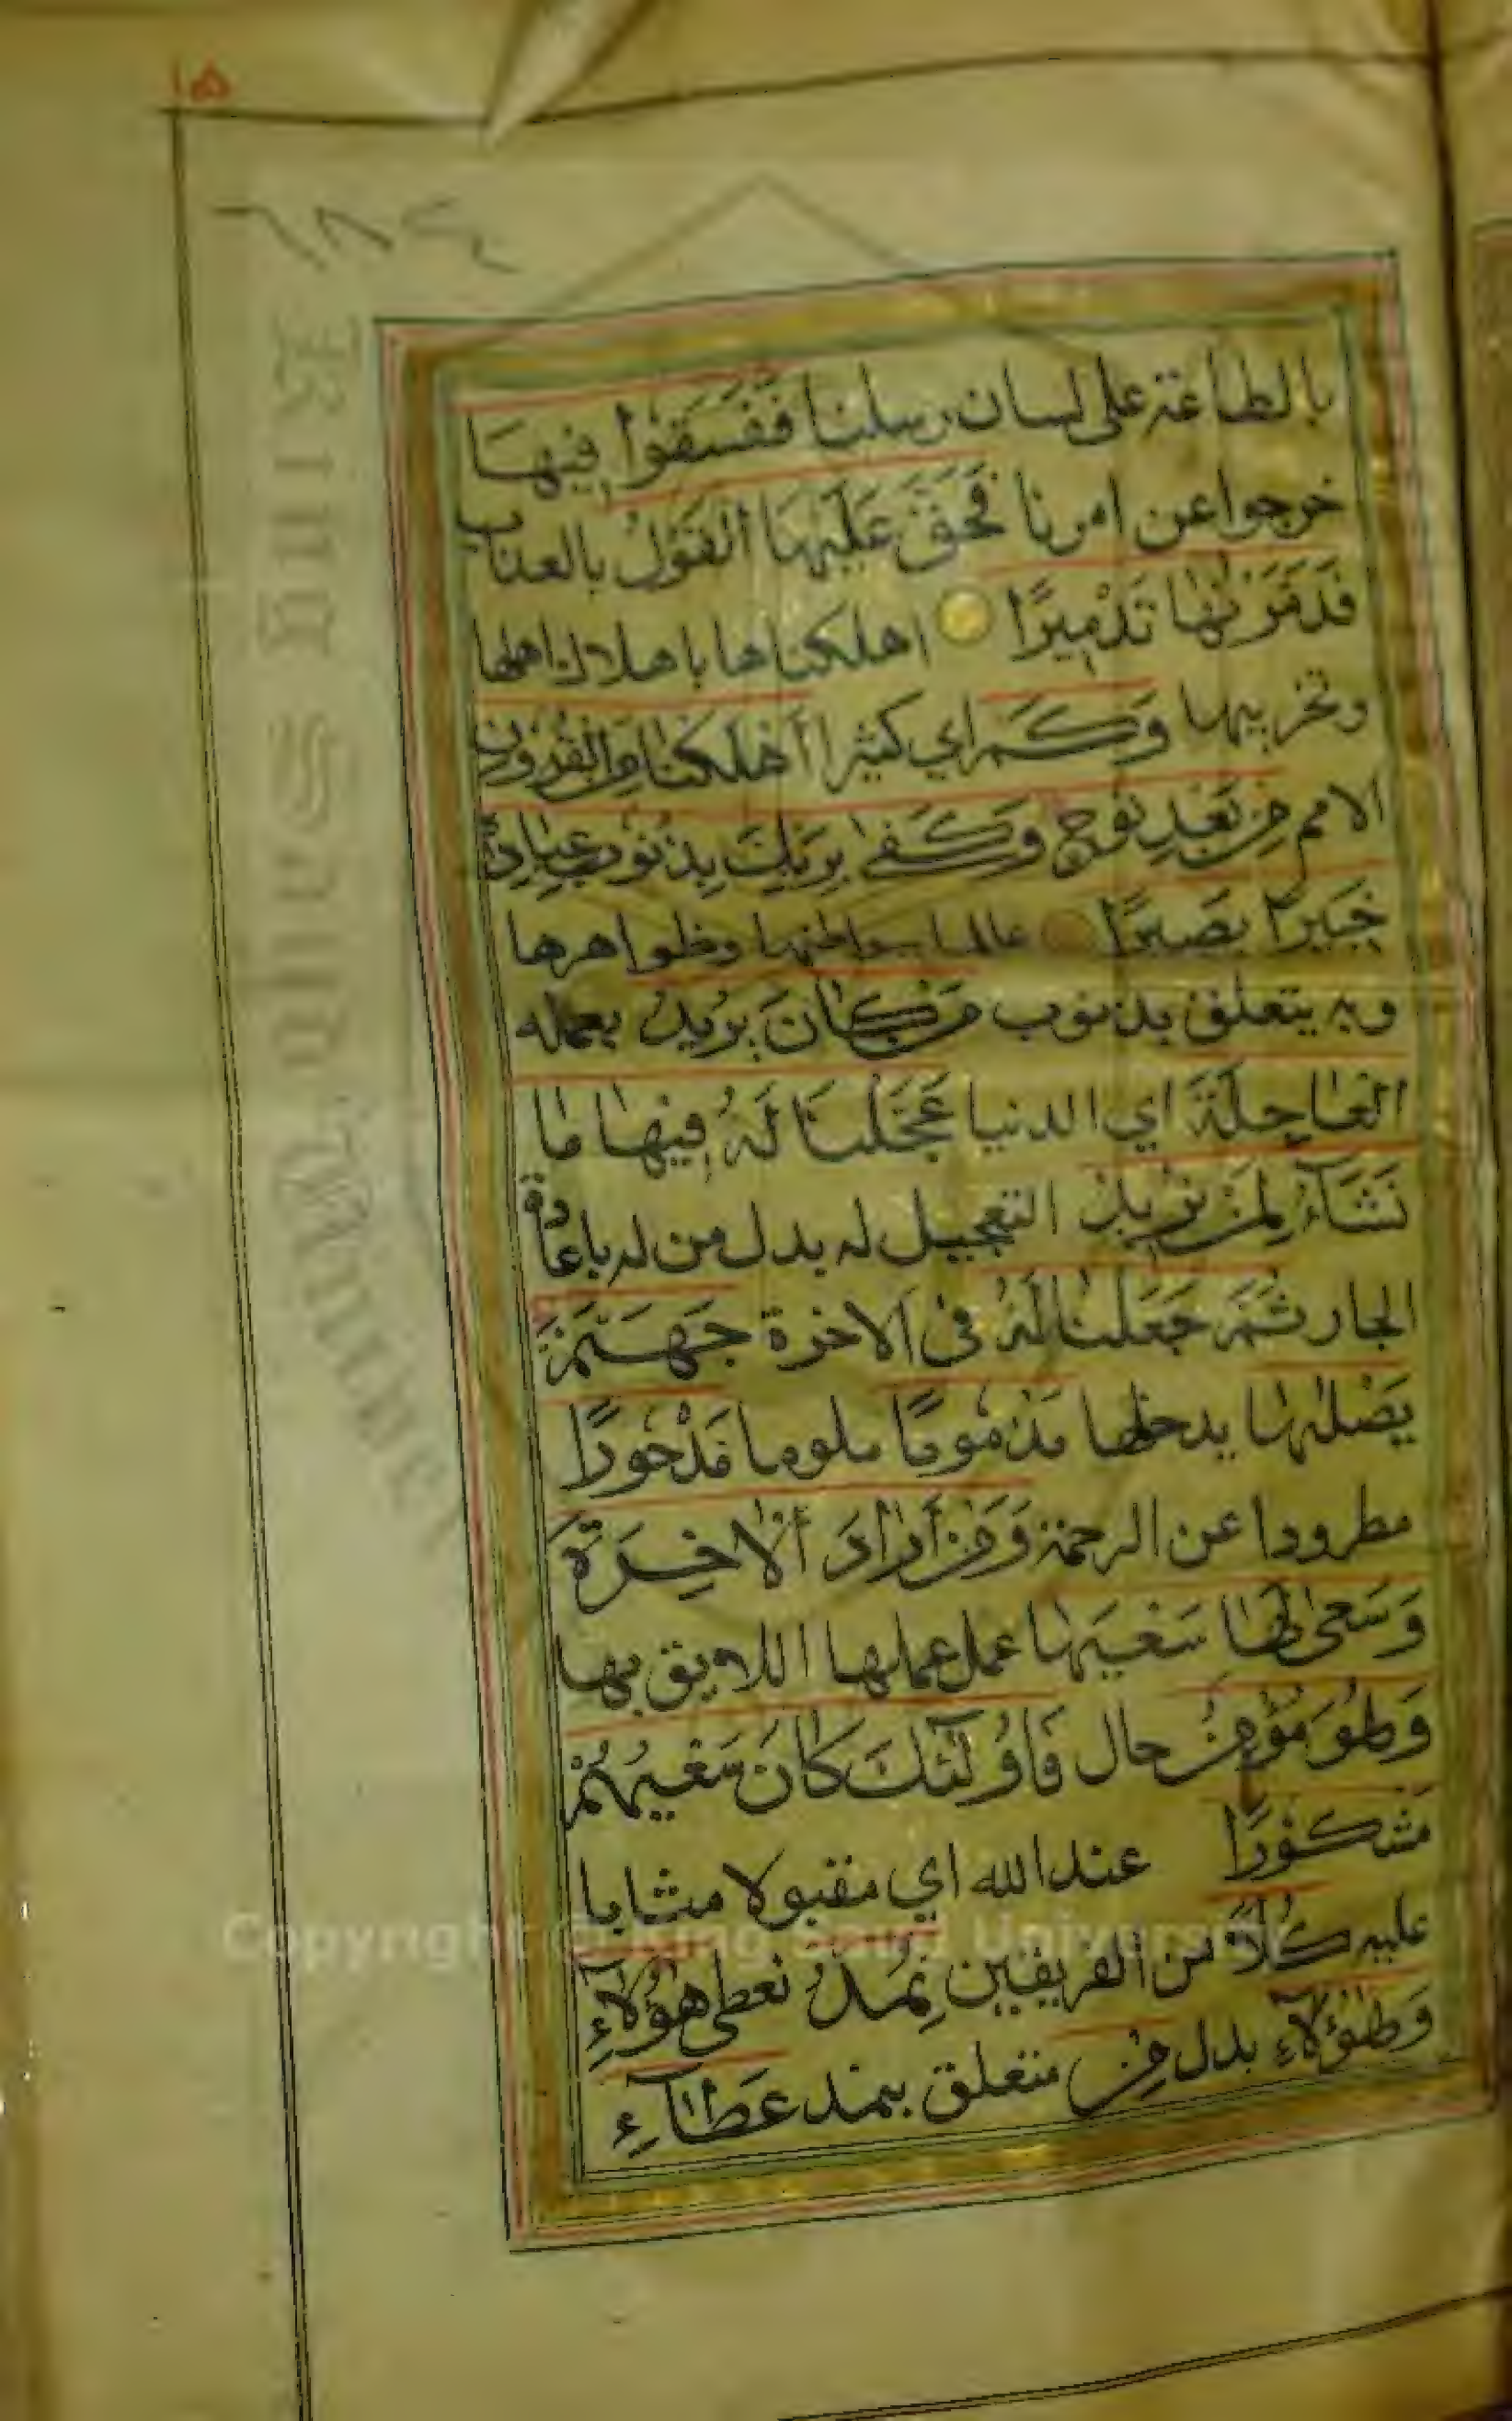 ١٥
بالطاعة على لسان رسلنا فَفَسَقُوا فِيهَا
خرجوا عن امرنا فَحَقَّ عَلَيْهَا الْقَوْلُ بالعذاب
فَدَمَّرْنٰهَا تَدْمِيرًا اهلكناها باهلاك اهلها
وتخريبها وَكَمْ اي كثيرا أَهْلَكْنَا مِنَ الْقُرُونِ
الامم مِنْ بَعْدِ نُوحٍ وَكَفٰى بِرَبِّكَ بِذُنُوبِ عِبَادِهِ
خَبِيرًا بَصِيرًا عالما ببواطنها وظواهرها
وبه يتعلق بذنوب مَنْ كَانَ يُرِيدُ بعمله
الْعَاجِلَةَ اي الدنيا عَجَّلْنَا لَهُ فِيهَا مَا
نَشَآءُ لِمَنْ نُرِيدُ التعجيل له بدل من له باعادة
الجار ثُمَّ جَعَلْنَا لَهُ فى الاخرة جَهَنَّمَ
يَصْلٰىهَا يدخلها مَذْمُومًا ملوما مَدْحُورًا
مطرودا عن الرحمة وَمَنْ أَرَادَ الْاٰخِرَةَ
وَسَعٰى لَهَا سَعْيَهَا عمل عملها اللايق بها
وَهُوَ مُؤْمِنٌ حال فَأُولٰٓئِكَ كَانَ سَعْيُهُمْ
مَشْكُورًا عند الله اي مقبولا مثابا
عليه كُلًّا من الفريقين نُمِدُّ نعطى هٰٓؤُلَآءِ
وَهٰٓؤُلَآءِ بدل مِنْ متعلق بنمد عَطَآءِ
King Saud University
Copyright © King Saud University